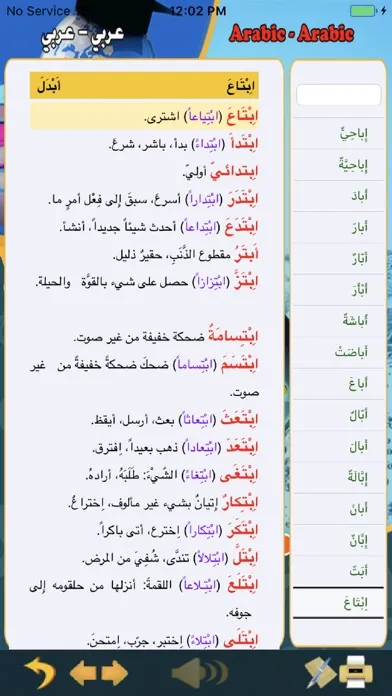 No Service
12:02 PM
عربي - عربي
Arabic - Arabic
اِبْتَاعَ
أَبْدَلَ
اِبْتَاعَ (ابْتِياعاً) اشترى.
اِبْتَدأَ (ابْتِداءً) بدأ، باشر، شرعَ.
اِبتدائيّ أوليّ.
اِبْتَدَرَ (ابْتِداراً) أسرعَ، سبقَ إلى فِعْل أمرٍ ما.
اِبْتَدَعَ (ابْتِداعاً) أحدث شيئاً جديداً، أنشأ.
أَبتَرُ مقطوع الذَّنَبِ، حقيرٌ ذليل.
اِبْتَزَّ (ابْتِزازاً) حصل على شيء بالقوَّة والحيلة.
اِبْتِسامَةُ ضحكة خفيفة من غير صوت.
اِبْتَسَمَ (ابْتِساماً) ضحكَ ضحكةً خفيفةً من غير
صوت.
اِبْتَعَثَ (ابْتِعاثاً) بعث، أرسل، أيقظ.
اِبْتَعَدَ (ابْتِعاداً) ذهب بعيداً، اِفترق.
اِبْتَغَى (ابْتِغاءً) الشَّيْءَ: طَلَبَهُ، أرادهُ.
اِبْتِكارٌ إتيانٌ بشيء غير مألوف، اِختراعٌ.
اِبْتَكَرَ (ابْتِكاراً) اِخترع، أتى باكراً.
اِبْتَلَّ (ابْتِلالاً) تندَّى، شُفِيَ من المرض.
اِبْتَلَعَ (ابْتِلاعاً) اللقمةَ: أنزلها من حلقومه إلى
جوفه.
اِبْتَلَى (ابْتِلاءً) اِختبر، جرّب، اِمتحنَ.
إباحِيٌّ
إباحِيَّةٌ
أَبادَ
أَبارَ
أَبَّارٌ
أَبْأَرَ
أَباشَةٌ
أَباضَتْ
أَباعَ
أَبَّالٌ
أَبالَ
إبَّالَةٌ
أَبانَ
إبَّانٌ
أَبَتّ
اِبْتَاعَ